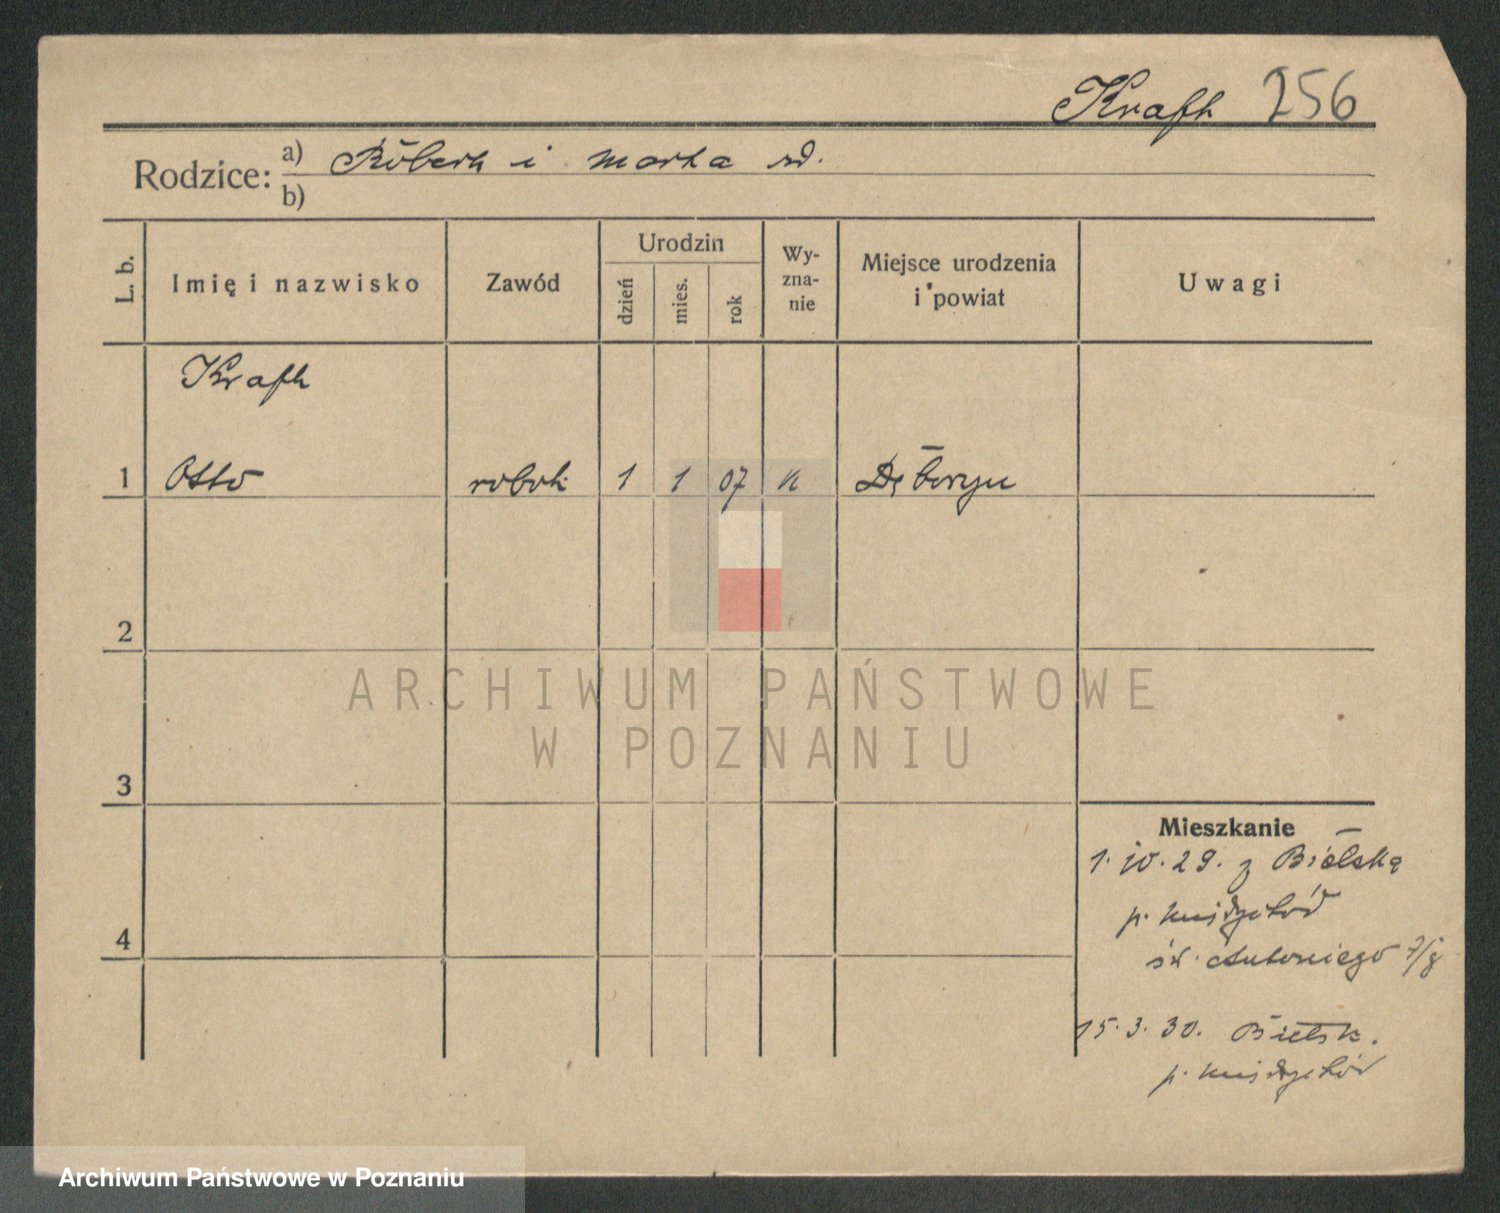 Kraft 256
Rodzice: a) Robert i Marta zd.
b)
L. b.
Imię i nazwisko
Zawód
Urodzin
dzień
mies.
rok
Wy-
zna-
nie
Miejsce urodzenia
i powiat
Uwagi
Kraft
1 Otto robot. 1 1 07
2
3
4
ARCHIWUM PAŃSTWOWE
W POZNANIU
Mieszkanie
1. 10. 29. z
p. Międzychód
św. Antoniego
15. 3. 30. Bielsk.
p. Międzychód
Archiwum Państwowe w Poznaniu